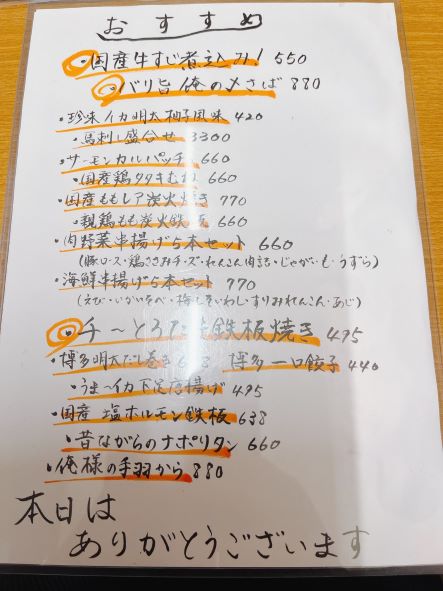 おすすめ
国産牛すじ煮込み! 550
バリ旨 俺の〆さば 880
・珍味イカ明太柚子風味 420
・馬刺し盛合せ 3300
・サーモンカルパッチョ 660
・国産鶏タタキむね 660
・国産ももレア炭火焼き 770
・親鶏もも炭火鉄板 660
・肉野菜串揚げ5本セット 660
(豚ロース・鶏ささみチーズ・れんこん肉詰・じゃがいも・うずら)
・海鮮串揚げ5本セット 770
(えび・いかいそべ・梅しそいわし・すりみれんこん・あじ)
チ〜とろ 鉄板焼き 495
・博多明太だし巻き 博多一口餃子 440
・うま〜イカ下足唐揚げ 495
・国産 塩ホルモン鉄板 638
・昔ながらのナポリタン 660
・俺様の手羽から 880
本日は
ありがとうございます